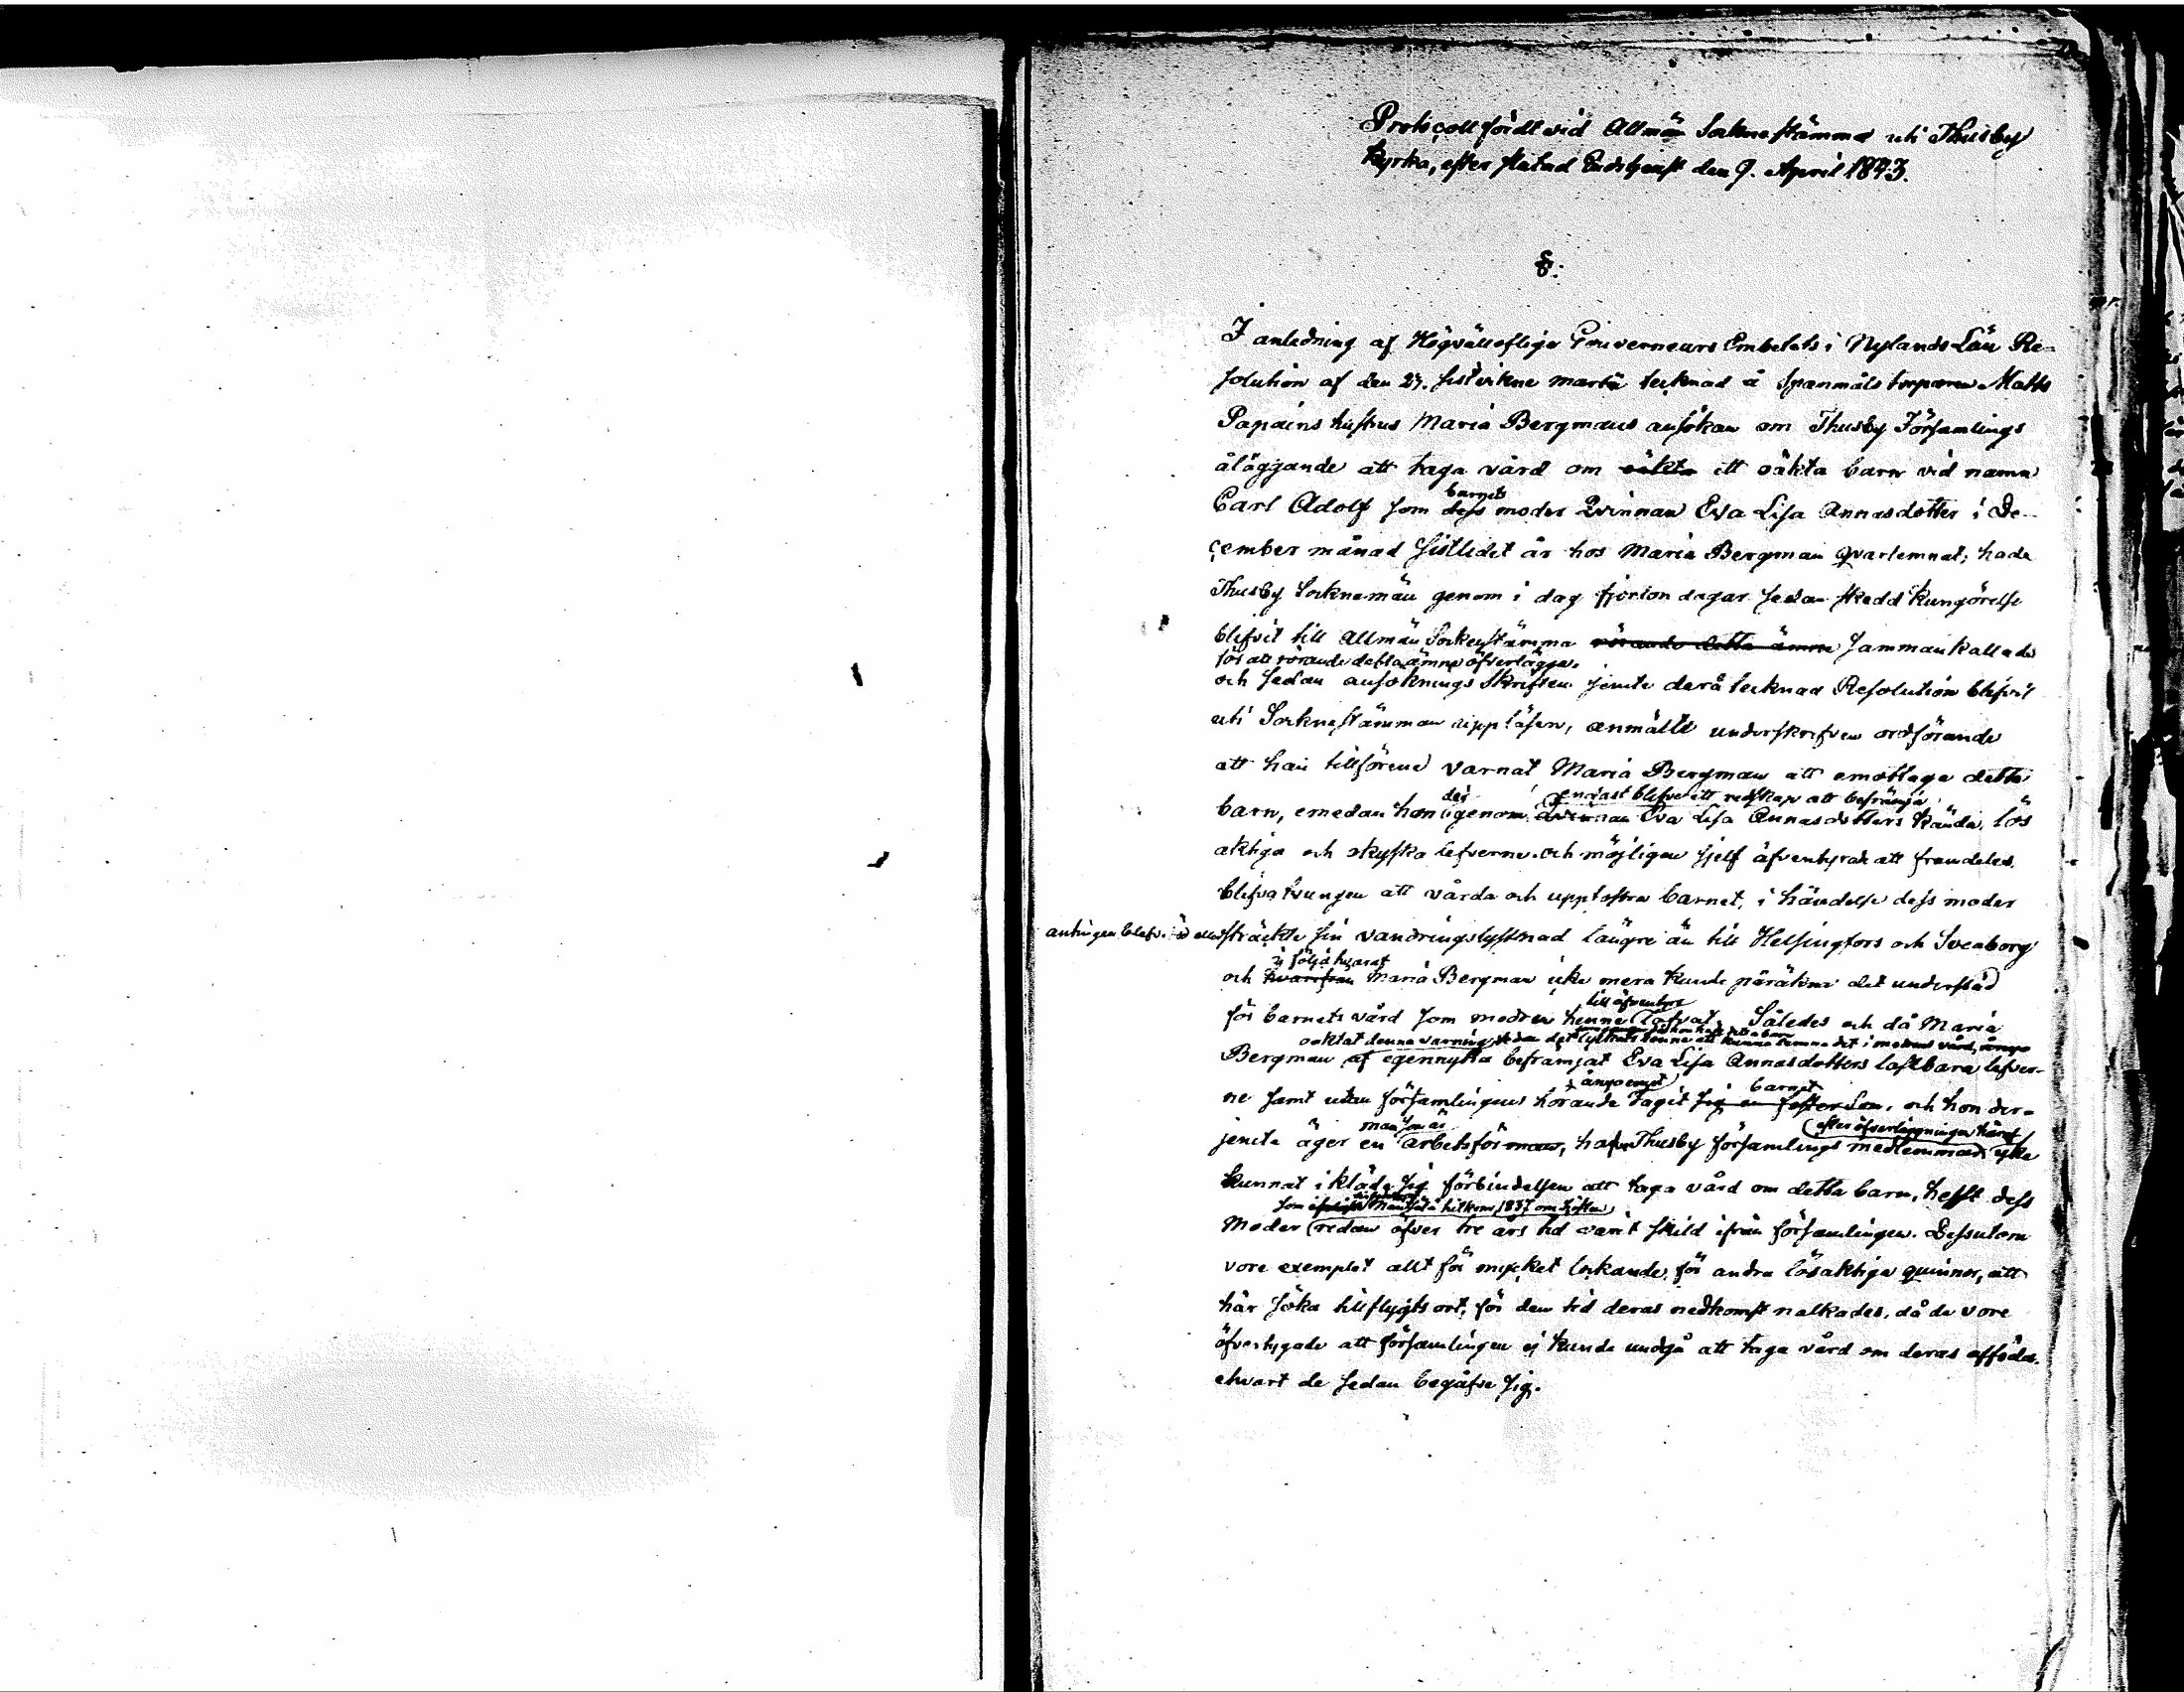 Protocoll fördt vid Allmän Sockne stämma uti Thusby
kyrka, efter slutad Gudstjenst den 9. April 1843.
§:
I anledning af Högvällofliga Gouverneurs Embetets i Nylands Län Re-
solution af den 27. sistvikne martii tecknad å Spanmåls torparen Matts
Papains hustrus Maria Bergmans ansökan om Thusby Församlings
åläggande att taga vård om oäkta ett oäkta barn vid namn
barnets
Carl Adolf som dess moder Qvinnan Eva Lisa Annasdotter i De-
cember månad sistledet år hos Maria Bergman qvarlemnat; hade
Thusby Socknemän genom i dag fjorton dagar sedan skedd kungörelse
blifvit till Allmän Sockenstämma rörande detta ämne sammankallade
för att rörande detta ämne öfverlägga.
och sedan ansöknings skriften jemte derå tecknad Resolution blifvit
uti Socknestämman uppläsen, anmälte underskrefven ordförande
att han tillförene varnat Maria Bergman att emottaga detta
der endast blefve ett redskap att befrämja
barn, emedan hon igenom qvinnan Eva Lisa Annasdotters kända lös
aktiga och okyska lefverne och möjligen sjelf äfventyrade att framdeles
blifva tvungen att vårda och uppfostra barnet, i händelse dess moder
antingen blefve eller sträckte sin vandringslystnad längre än till Helsingfors och Sveaborg
i följd hvaraf
och hvarifrån Maria Bergman icke mera kunde påräkna det understöd
till äfventyrs
för barnets vård som modren henne lofvat. Således och då Maria
oaktat denna varning
Bergman af egennytta befrämjat Eva Lisa Annasdotters lastbara lefver-
ångo emot barnet
ne samt utan församlingens hörande tagit sig en fosterson, och hon der-
man som är efter öfverläggningen häraf
jemte äger en arbetsför man, hafva Thusby församlings medlemmar icke
kunnat ikläda sig förbindelsen att taga vård om detta barn, helst dess
som
Moder redan öfver tre års tid varit skild ifrån församlingen. Dessutom
vore exemplet allt för mycket lockande för andra lösaktiga quinnor, att
här söka tillflygts ort för den tid deras nedkomst nalkades, då de vore
öfvertygade att församlingen ej kunde undgå att taga vård om deras afföda,
ehvart de sedan begåfve sig.